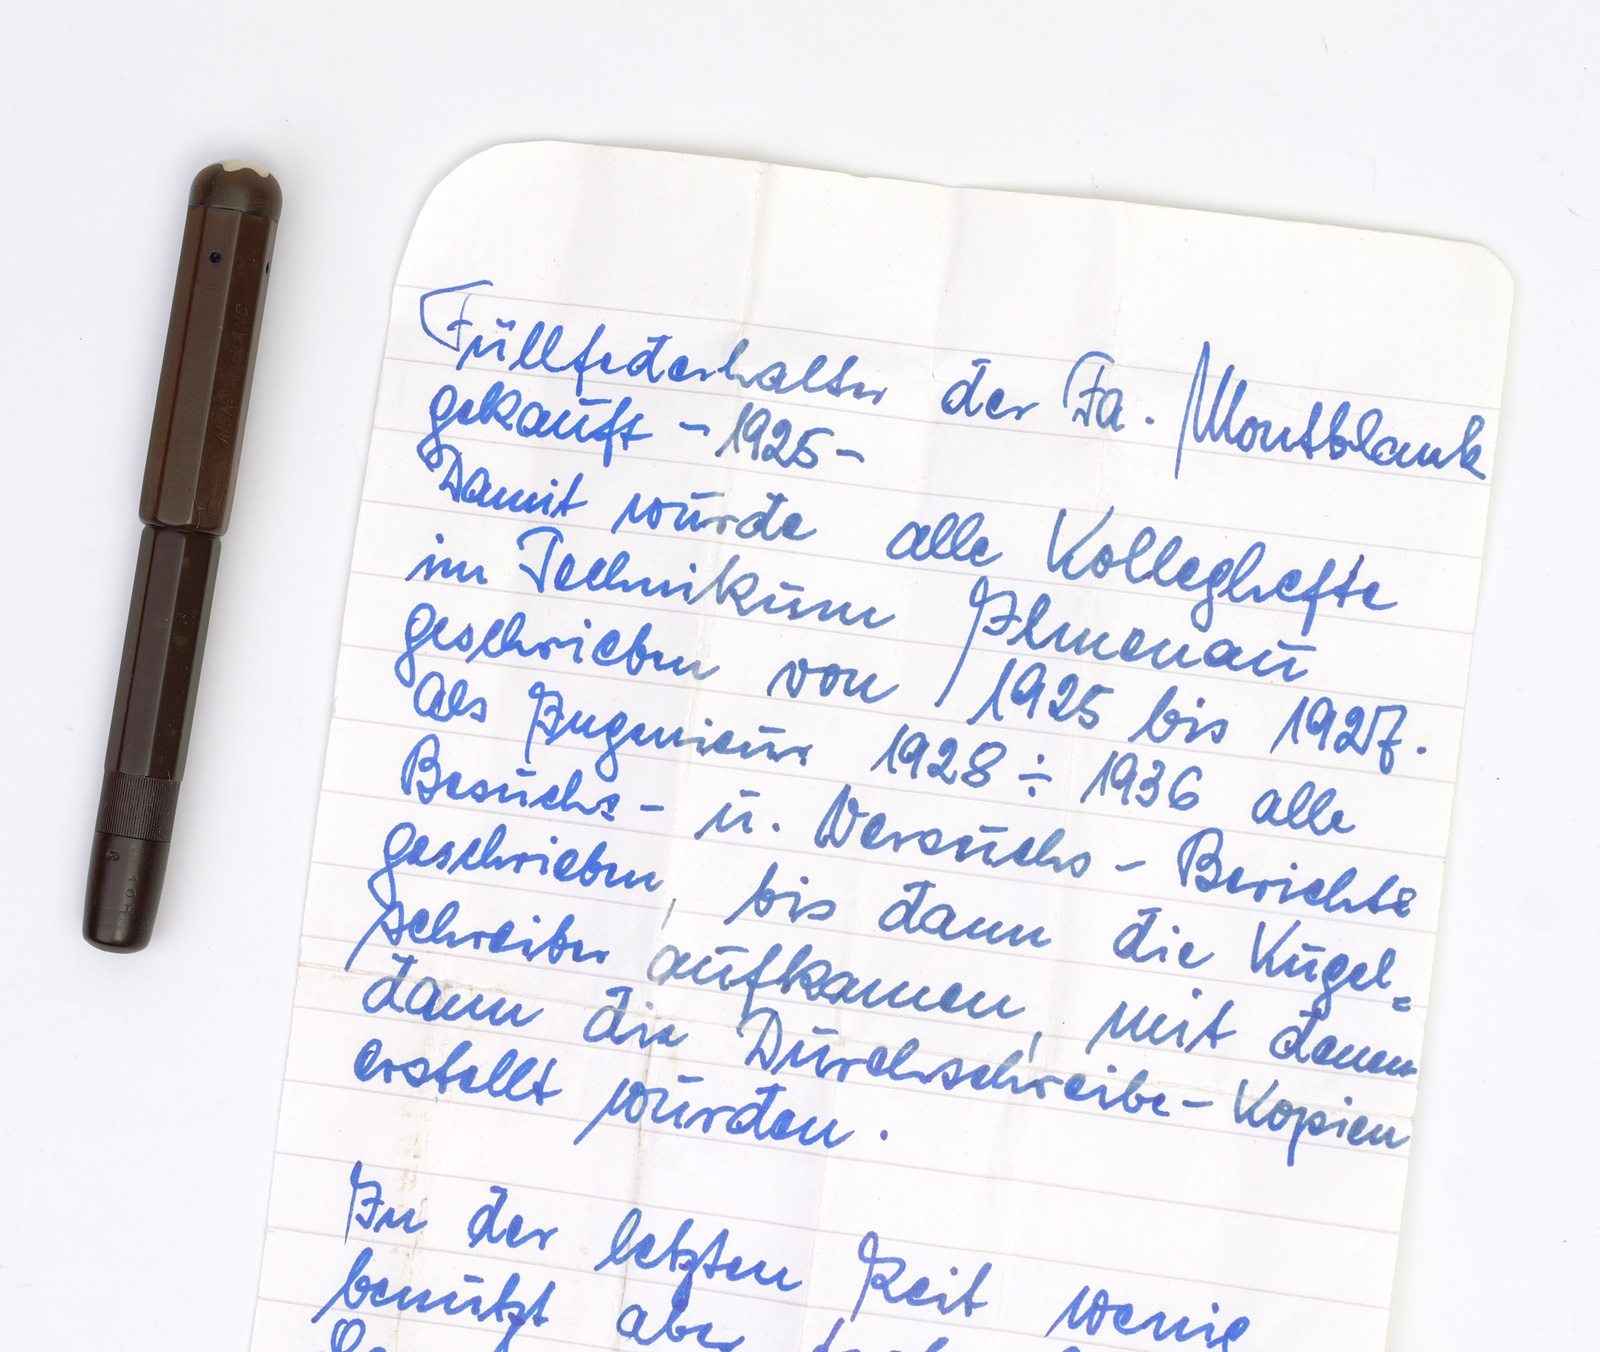 Füllfederhalter der Fa. Montblank
gekauft - 1925 -
Damit wurde alle Kolleghefte
im Technikum Ilmenau
geschrieben von 1925 bis 1927.
Als Ingenieur 1928 ÷ 1936 alle
Besuchs- u. Versuchs-Berichte
geschrieben, bis dann die Kugel=
schreiber aufkamen, mit denen
dann die Durchschreibe-Kopien
erstellt wurden.
In der letzten Zeit wenig
benützt aber